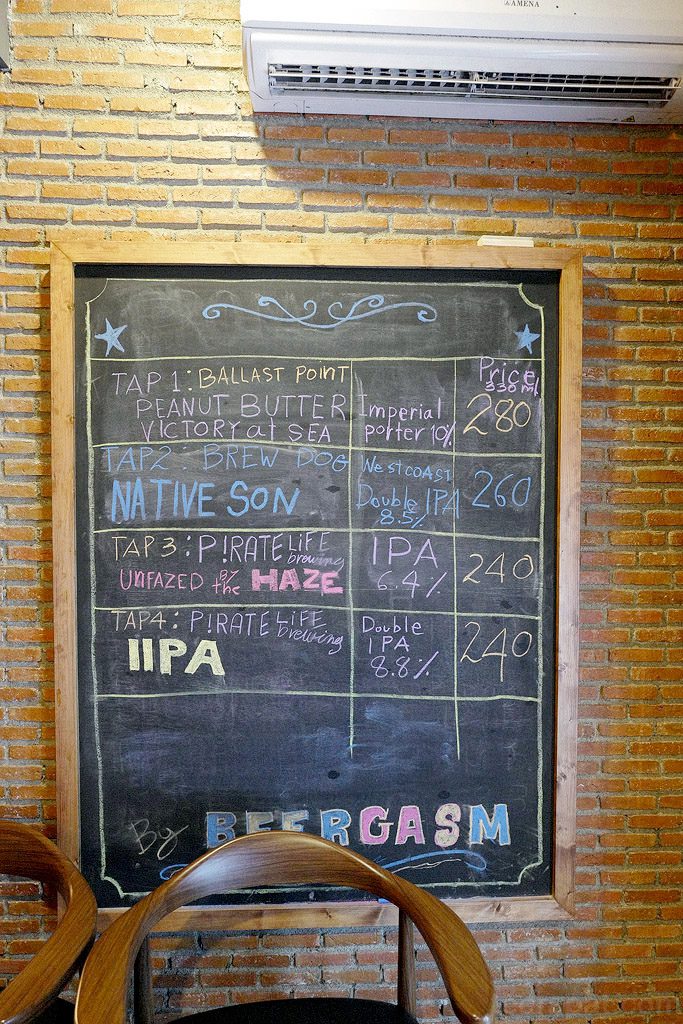 AMENA
Price
330 ml
TAP 1: BALLAST POINT
PEANUT BUTTER
VICTORY at SEA
Imperial
porter 10%
280
TAP2: BREW DOG
NATIVE SON
West COAST
Double IPA
8.5%
260
TAP3: P!RATE LiFE
brewing
UNFAZED BY the HAZE
IPA
6.4%
240
TAP4: P!RATE LIFE
brewing
IIPA
Double
IPA
8.8%
240
By BEERGASM